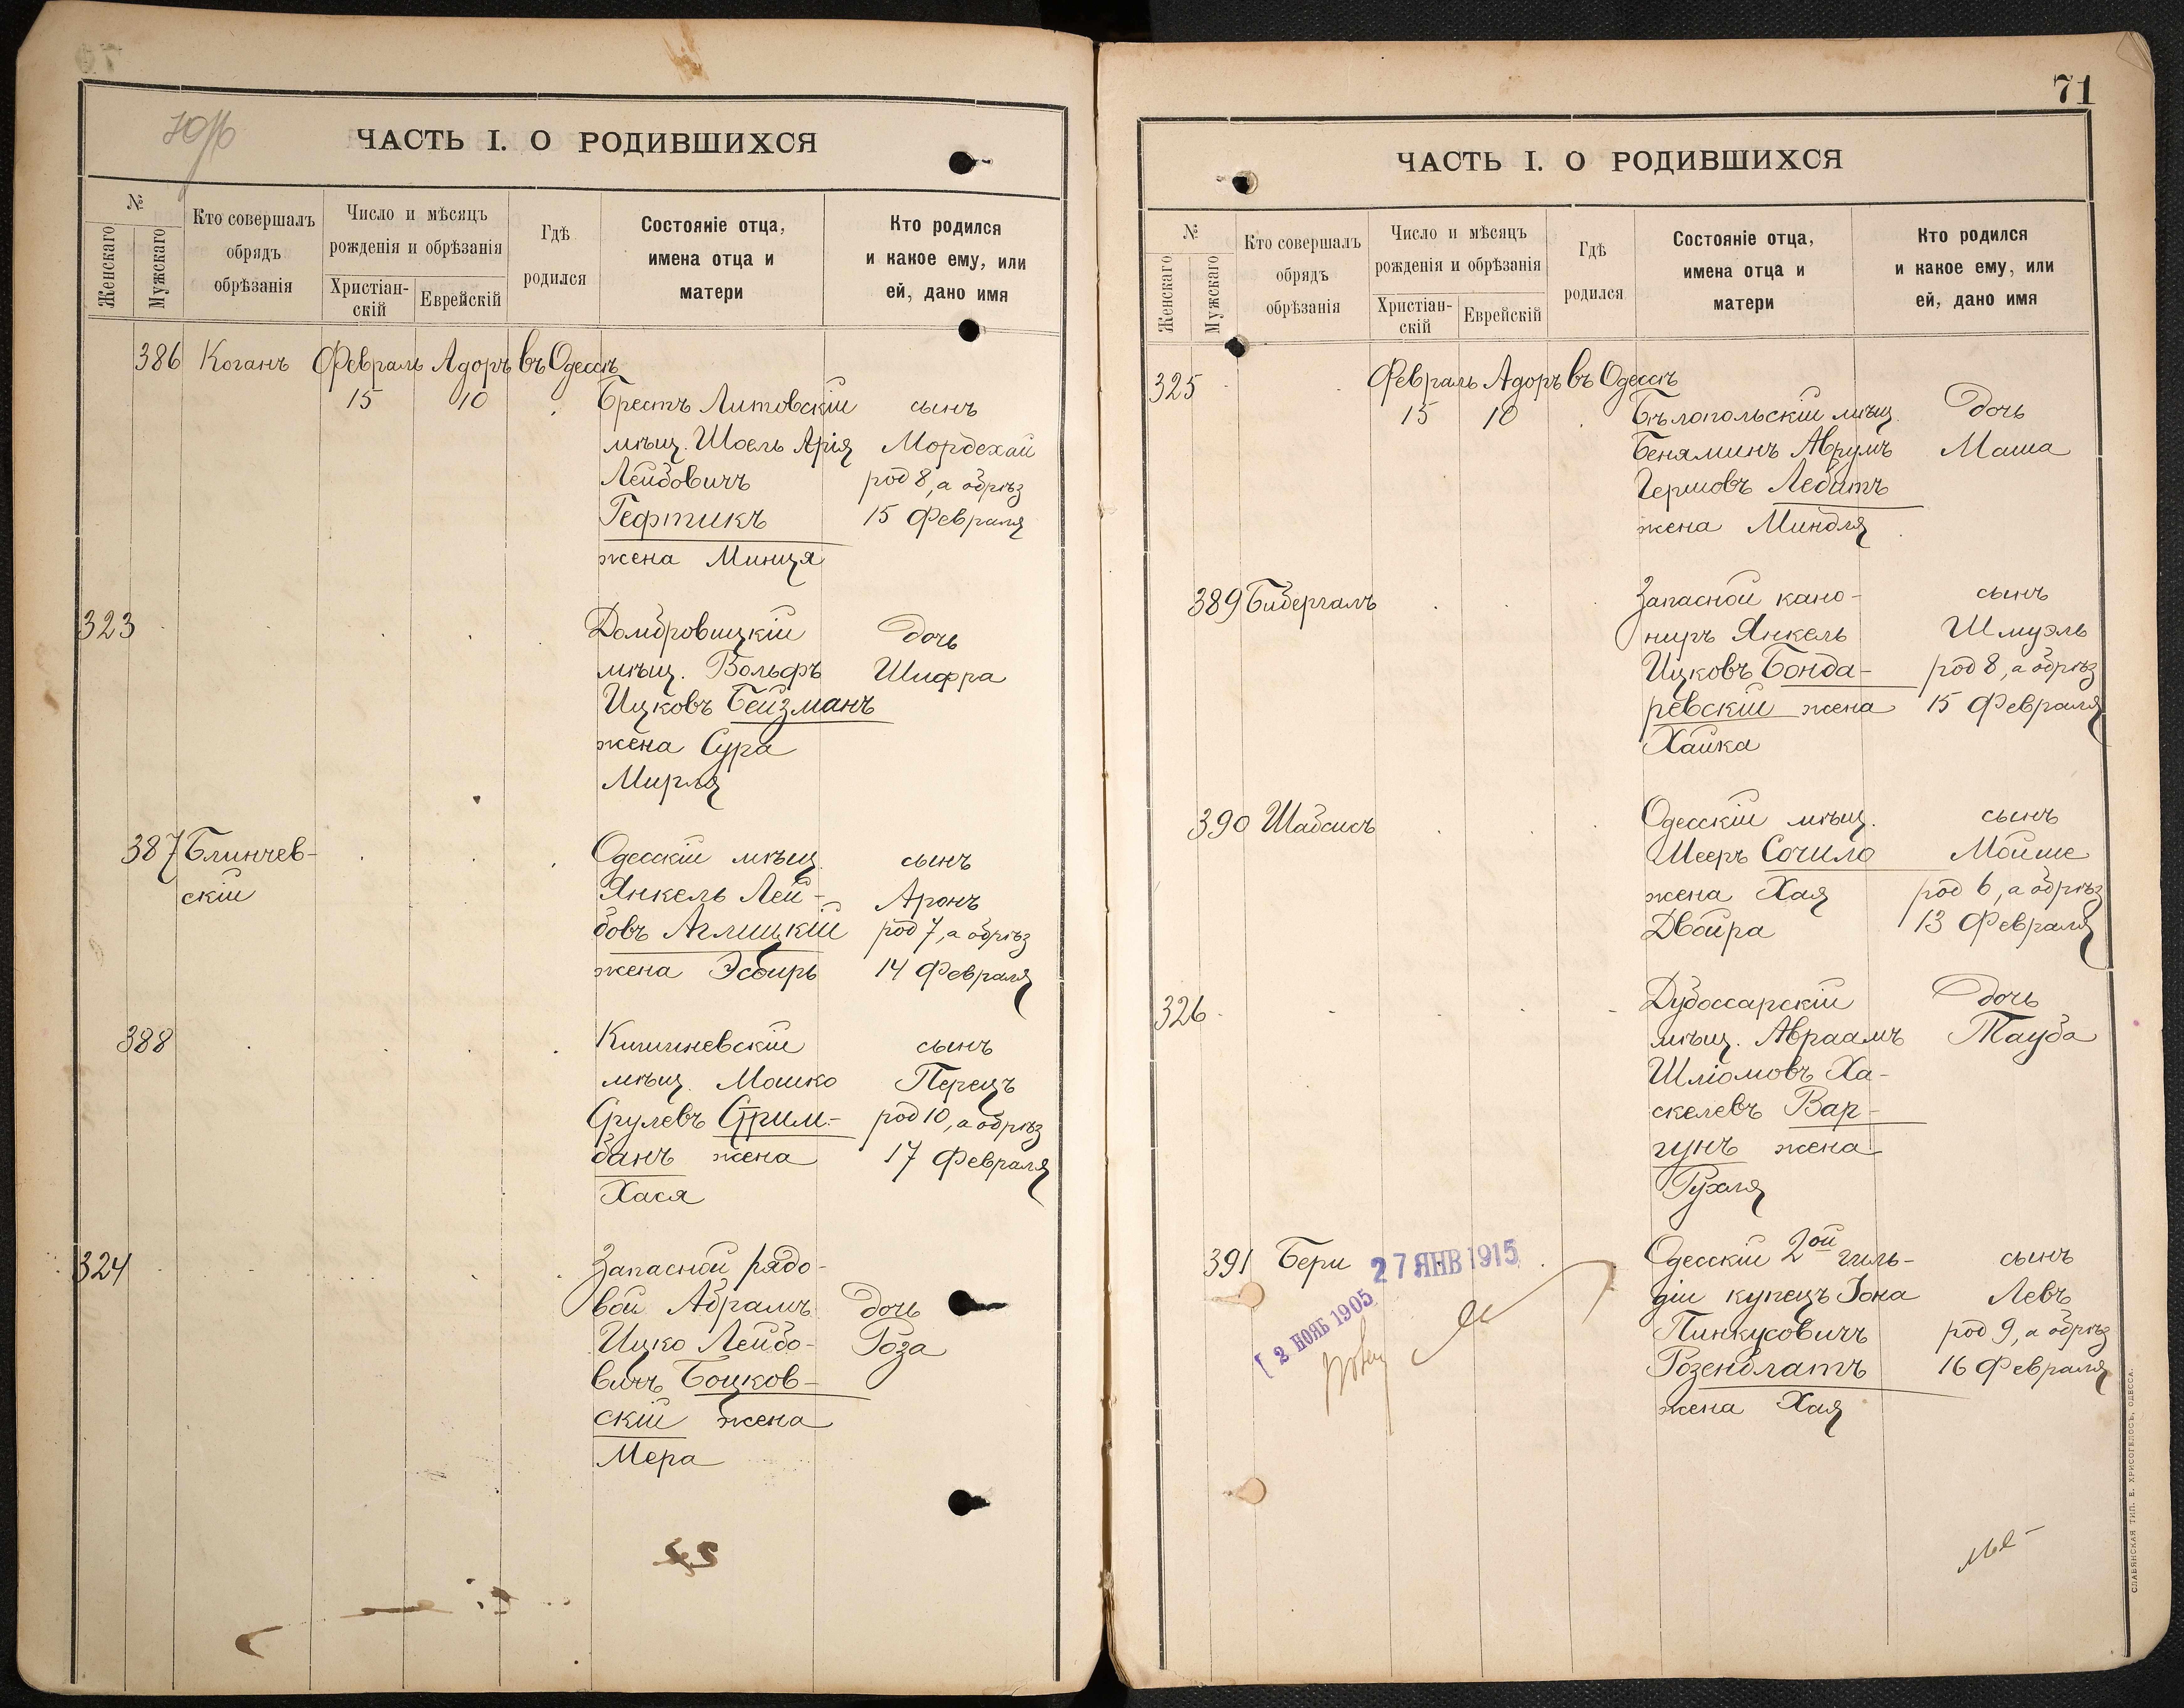 ЧАСТЬ I. О РОДИВШИХСЯ
№
Женскаго
Мужскаго
Кто совершалъ
обрядъ
обрѣзанія
Число и мѣсяцъ
рожденія и обрѣзанія
Христіан-
скій
Еврейскій
Гдѣ
родился
Состояніе отца,
имена отца и
матери
Кто родился
и какое ему, или
ей, дано имя
386 Коганъ Февраль Адоръ въ Одессѣ
15 10
Брестъ Литовскій сынъ
мѣщ. Шоель Арія Мордехай
Лейбовичъ род 8, а обрѣз
Гефтикъ 15 Февраля
жена Минця
323
Домбровицкій дочь
мѣщ. Вольфъ Шифра
Ицковъ Бейзманъ
жена Сура
Мирля
387 Блинчев-
скій
Одесскій мѣщ. сынъ
Янкель Лей- Аронъ
бовъ Аглицкій род 7, а обрѣз
жена Эсфирь 14 Февраля
388
Кишиневскій сынъ
мѣщ. Мошко Перецъ
Срулевъ Стрим- род 10, а обрѣз
банъ жена 17 Февраля
Хася
324
Запасной рядо-
вой Абрамъ дочь
Ицко Лейбо- Роза
вичъ Боцков-
скій жена
Мера
71
ЧАСТЬ I. О РОДИВШИХСЯ
№
Женскаго
Мужскаго
Кто совершалъ
обрядъ
обрѣзанія
Число и мѣсяцъ
рожденія и обрѣзанія
Христіан-
скій
Еврейскій
Гдѣ
родился
Состояніе отца,
имена отца и
матери
Кто родился
и какое ему, или
ей, дано имя
325 Февраль Адоръ въ Одессѣ
15 10
Бѣлопольскій мѣщ. дочь
Беняминъ Аврумъ Маша
Гершовъ Лебитъ
жена Миндля
389 Бибергалъ
Запасной кано- сынъ
ниръ Янкель Шмуэль
Ицковъ Бонда- род 8, а обрѣз
ревскій жена 15 Февраля
Хайка
390 Шабсисъ
Одесскій мѣщ. сынъ
Мееръ Сочило Мойше
жена Хая род 6, а обрѣз
Двойра 13 Февраля
326
Дубоссарскій дочь
мѣщ. Авраамъ Тауба
Шліомовъ Ха-
скелевъ Вар-
гунъ жена
Рухля
391 Бери
27 ЯНВ 1915
2 НОЯБ 1905
Одесскій 2ой гиль- сынъ
діи купецъ Іона Левъ
Пинкусовичъ род 9, а обрѣз
Розенблатъ 16 Февраля
жена Хая
СЛАВЯНСКАЯ ТИП. Е. ХРИСОГЕЛОСЪ, ОДЕССА.